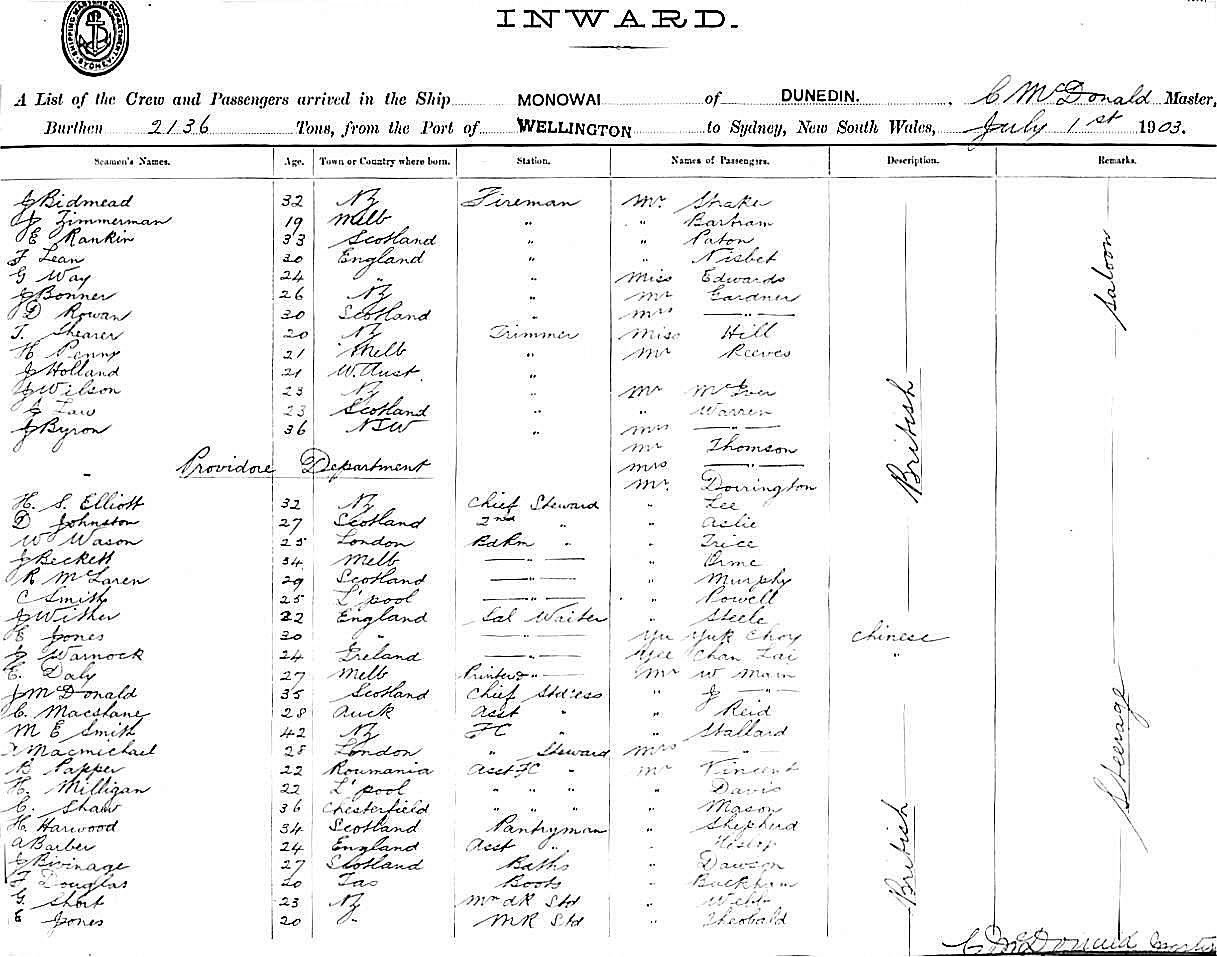 SHIPPING MASTERS DEPARTMENT SYDNEY
INWARD.
A List of the Crew and Passengers arrived in the Ship MONOWAI of DUNEDIN. , C McDonald Master,
Burthen 2136 Tons, from the Port of WELLINGTON to Sydney, New South Wales, July 1st 1903.
Seamen's Names. Age. Town or Country where born. Station. Names of Passengers. Description. Remarks.
J Bidmead 32 NZ Fireman Mr Straker
J Zimmerman 19 Melb " " Bartram
E Rankin 33 Scotland " " Paton
F Lean 30 England " " Nisbet
G Way 24 " " Miss Edwards
J Bonner 26 NZ " Mr Gardner
D Rowan 30 Scotland " Mrs — " —
T. Shearer 20 NZ Trimmer Miss Hill
H Penny 21 Melb " Mr Reeves
J Holland 21 W. Aust. "
J Wilson 23 NZ " Mr McIver
J Law 23 Scotland " " Warren
J Byron 36 NSW " Mrs — " —
Mr Thomson
Providore Department Mrs — " —
Mr Dorrington
H. S. Elliott 32 NZ Chief Steward " Lee
D Johnston 27 Scotland 2nd " " Aslie
W Wason 25 London BdRm " " Trice
J Beckett 34 Melb — " — " Orme
R McLaren 29 Scotland — " — " Murphy
C Smith 25 L'pool — " — " Powell
J Wither 22 England Sal Waiter " Steele
E Jones 30 " — " — Yu Yuk Choy Chinese
J Warnock 24 Ireland — " — Yee Chan Lai "
E. Daly 27 Melb Printer & — " — Mr W Main
J McDonald 35 Scotland Chief Std'ess " J — " —
C. Macshane 28 Auck Asst " " Reid
M E Smith 42 NZ FC " " Stallard
Macmichael 28 London " Steward Mrs — " —
B Papper 22 Roumania Asst FC " Mr Vincent
H. Milligan 22 L'pool " " " " Davis
C. Shaw 36 Chesterfield " " " " Mason
H Harwood 34 Scotland Pantryman " Shepherd
A Barber 24 England Asst " " Hislop
J Bivinage 27 Scotland Baths " Dawson
F Douglas 20 Tas Boots " Buckham
G Short 23 NZ Std " Webb
E Jones 20 " MR Std " Theobald
British
Saloon
British
Steerage
C McDonald Master